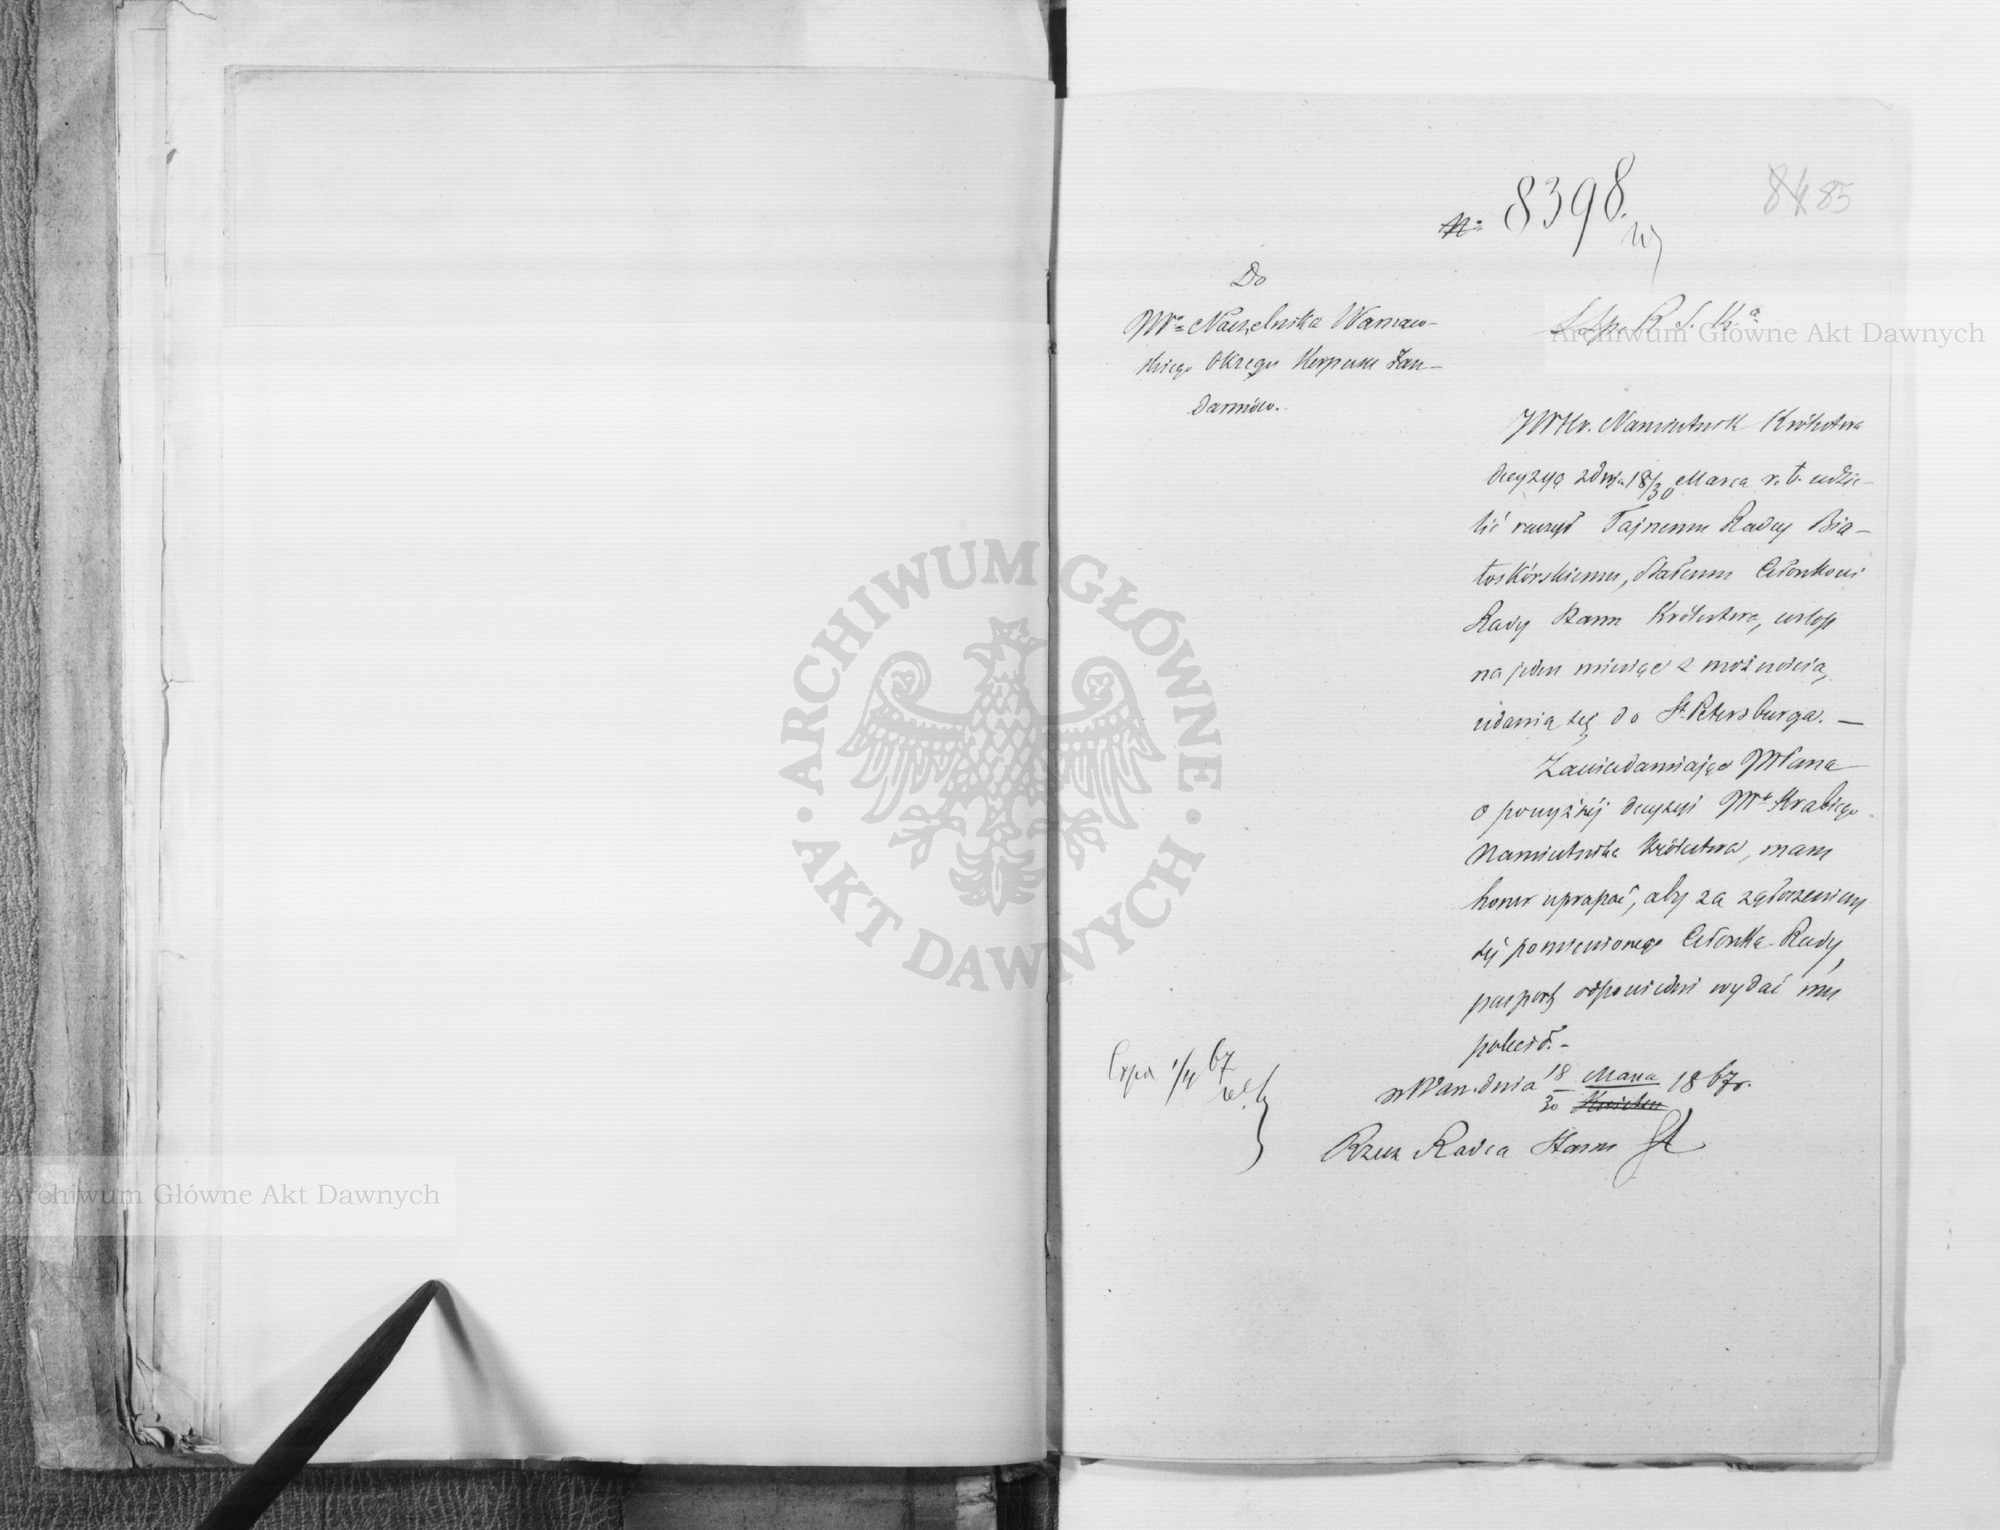 № 8398.
85
Do
JW° Naczelnika Warszaw-
skiego Okręgu Korpusu Żan-
darmów.
JW Hr. Namiestnik Królestwa
decyzyą z dnia 18/30 Marca r. b. udzie-
lić raczył Tajnemu Radcy Bia-
łoskórskiemu, stałemu Członkowi
Rady Stanu Królestwa, urlop
na jeden miesiąc z możnością
udania się do St. Petersburga. —
Zawiadamiając JWPana
o powyższéj decyzyi JWo Hrabiego
Namiestnika Królestwa, mam
honor upraszać, aby za zgłoszeniem
się pomienionego Członka Rady,
paszport odpowiedni wydać mu
polecił. -
w War. dnia 18/30 Marca Kwietnia 1867 r.
Rzecz. Radca Stanu
Exped 1/4 67
ARCHIWUM GŁÓWNE AKT DAWNYCH
Archiwum Główne Akt Dawnych
Archiwum Główne Akt Dawnych